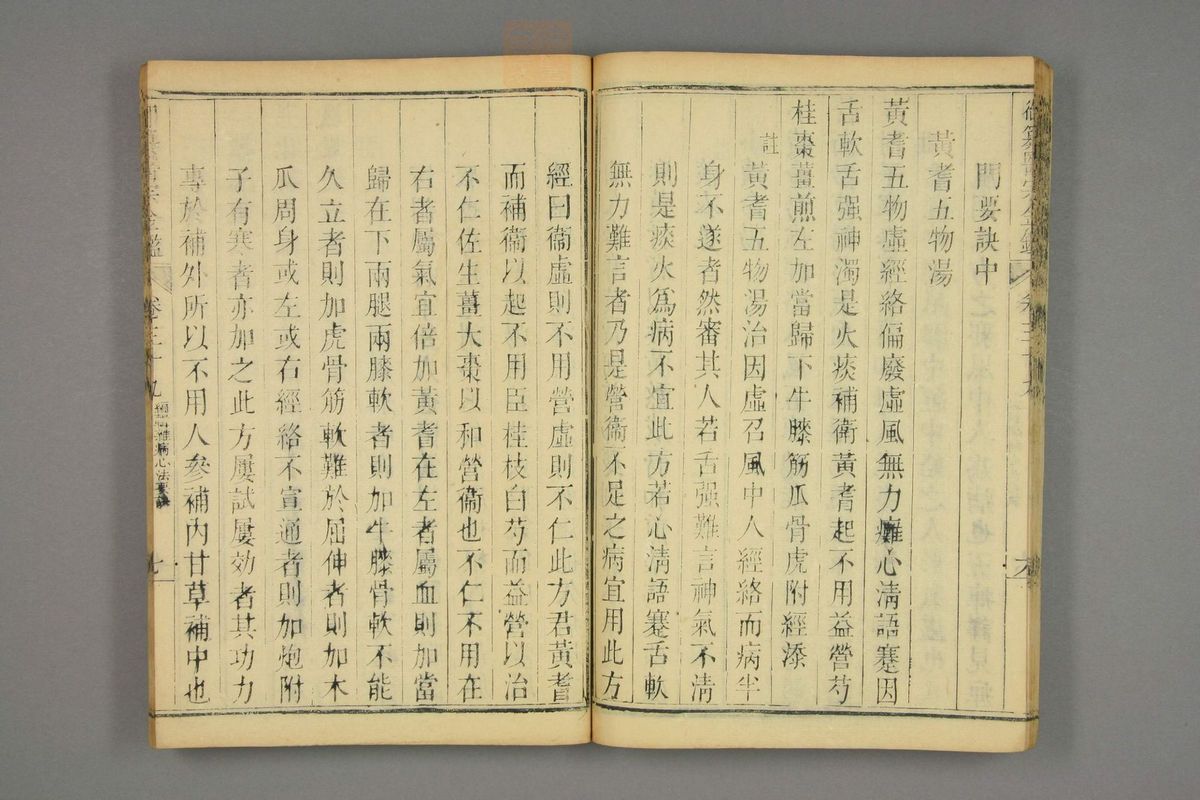 門要訣中
黃耆五物湯
黃耆五物虛經絡偏廢虛風無力癱心清語蹇因
舌軟舌强神濁是火痰補衛黃耆起不用益營芍
桂棗薑煎左加當歸下牛膝筋瓜骨虎附經添
註
黃耆五物湯治因虛召風中人經絡而病半
身不遂者然審其人若舌强難言神氣不清
則是痰火爲病不宜此方若心清語蹇舌軟
無力難言者乃是營衞不足之病宜用此方
經曰衞虛則不用營虛則不仁此方君黃耆
而補衞以起不用臣桂枝白芍而益營以治
不仁佐生薑大棗以和營衞也不仁不用在
右者屬氣宜倍加黃耆在左者屬血則加當
歸在下兩腿兩膝軟者則加牛膝骨軟不能
久立者則加虎骨筋軟難於屈伸者則加木
瓜周身或左或右經絡不宣通者則加炮附
子有寒者亦加之此方屢試屢效者其功力
專於補外所以不用人參補內甘草補中也
卷三十九
雜病心法要訣